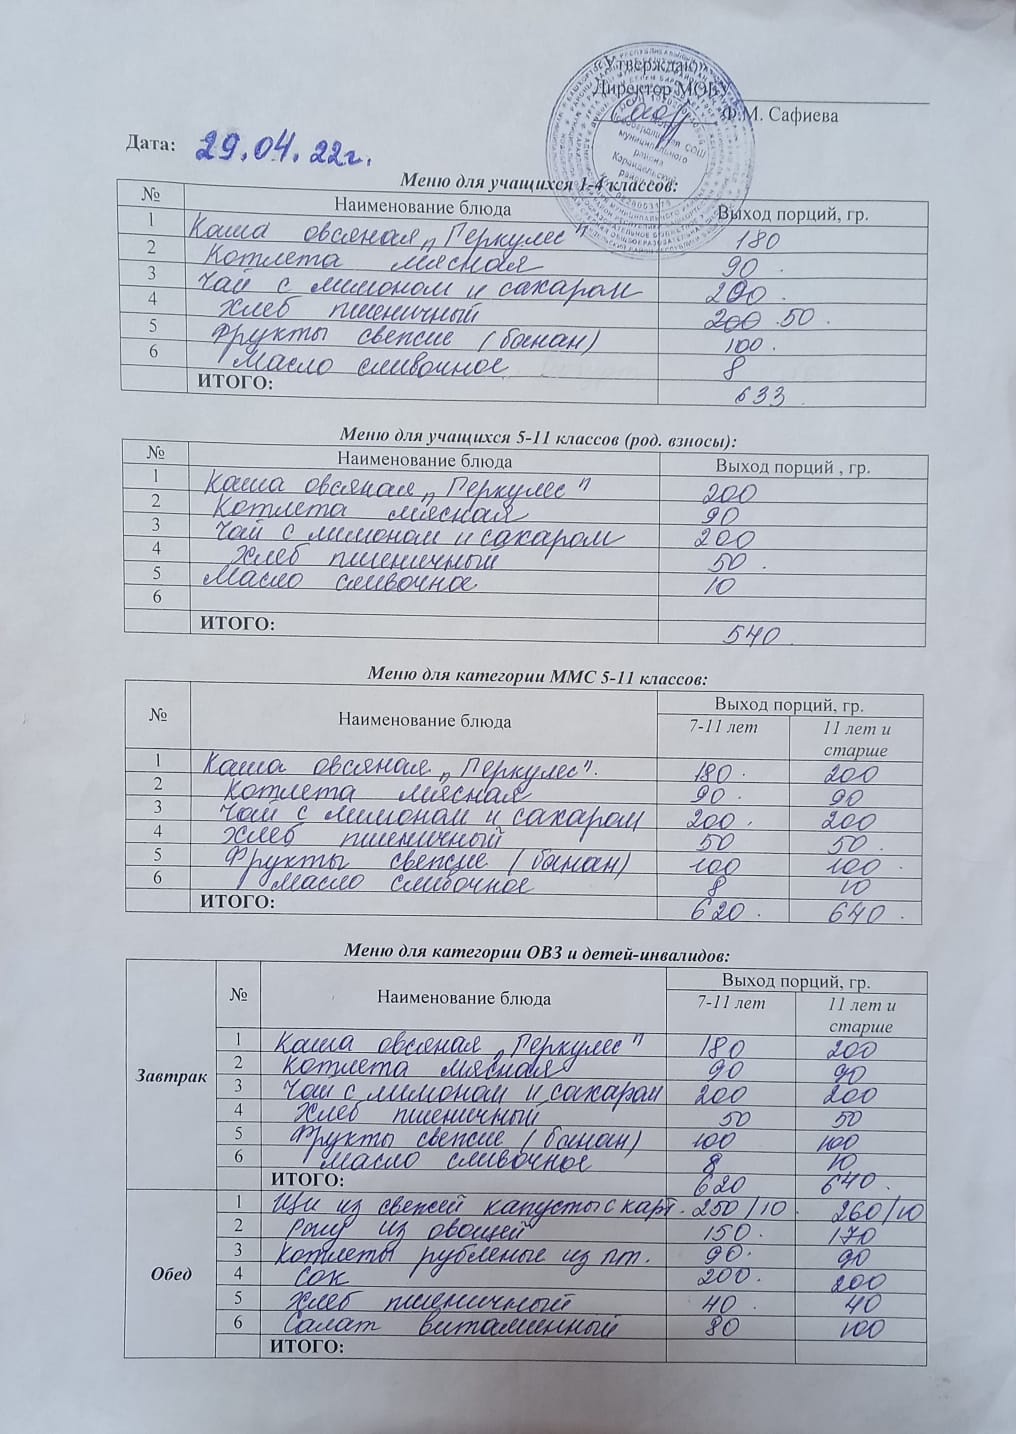 Утверждаю
Директор МОБУ
Ф.М. Сафиева
Дата: 29.04.22г.
Меню для учащихся 1-4 классов:
№ Наименование блюда Выход порций, гр.
1 Каша овсяная „Геркулес" 180
2 Котлета мясная 90
3 Чай с лимоном и сахаром 200
4 Хлеб пшеничный 200 50
5 Фрукты свежие (банан) 100
6 Масло сливочное 8
ИТОГО: 633
Меню для учащихся 5-11 классов (род. взносы):
№ Наименование блюда Выход порций , гр.
1 Каша овсяная „Геркулес" 200
2 Котлета мясная 90
3 Чай с лимоном и сахаром 200
4 Хлеб пшеничный 50
5 Масло сливочное 10
6
ИТОГО: 540
Меню для категории ММС 5-11 классов:
№ Наименование блюда Выход порций, гр.
7-11 лет 11 лет и старше
1 Каша овсяная „Геркулес". 180 200
2 Котлета мясная 90 90
3 Чай с лимоном и сахаром 200 200
4 Хлеб пшеничный 50 50
5 Фрукты свежие (банан) 100 100
6 Масло сливочное 8 10
ИТОГО: 620 640
Меню для категории ОВЗ и детей-инвалидов:
№ Наименование блюда Выход порций, гр.
7-11 лет 11 лет и старше
Завтрак
1 Каша овсяная „Геркулес" 180 200
2 Котлета мясная 90 90
3 Чай с лимоном и сахаром 200 200
4 Хлеб пшеничный 50 50
5 Фрукты свежие (банан) 100 100
6 Масло сливочное 8 10
ИТОГО: 620 640
Обед
1 Щи из свежей капусты с карт. 250/10 260/10
2 Рагу из овощей 150 170
3 Котлеты рубленые из пт. 90 90
4 Сок 200 200
5 Хлеб пшеничный 40 40
6 Салат витаминный 80 100
ИТОГО: